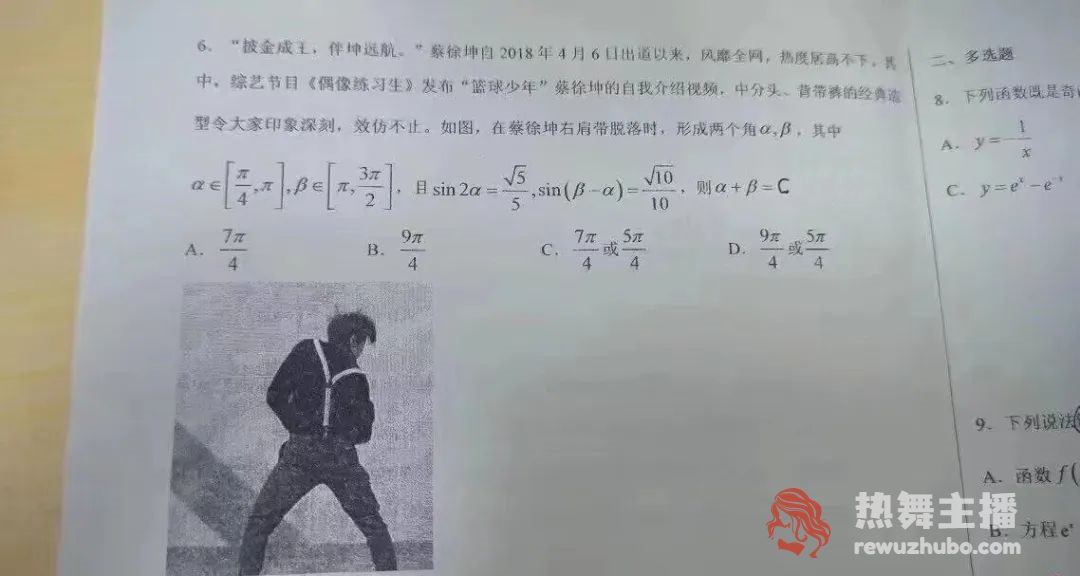 6、“披金成王，伴坤远航。”蔡徐坤自 2018 年 4 月 6 日出道以来，风靡全网，热度居高不下。其
中，综艺节目《偶像练习生》发布“篮球少年”蔡徐坤的自我介绍视频，中分头、背带裤的经典造
型令大家印象深刻，效仿不止。如图，在蔡徐坤右肩带脱落时，形成两个角α,β，其中
α∈[π/4,π],β∈[π,3π/2]，且 sin2α=√5/5,sin(β-α)=√10/10，则α+β=C
A. 7π/4 B. 9π/4 C. 7π/4或5π/4 D. 9π/4或5π/4
二、多选题
8. 下列函数既是奇
A. y=-1/x
C. y=eˣ-e⁻ˣ
9. 下列说法
A. 函数 f(
B. 方程eˣ
热舞主播
rewuzhubo.com